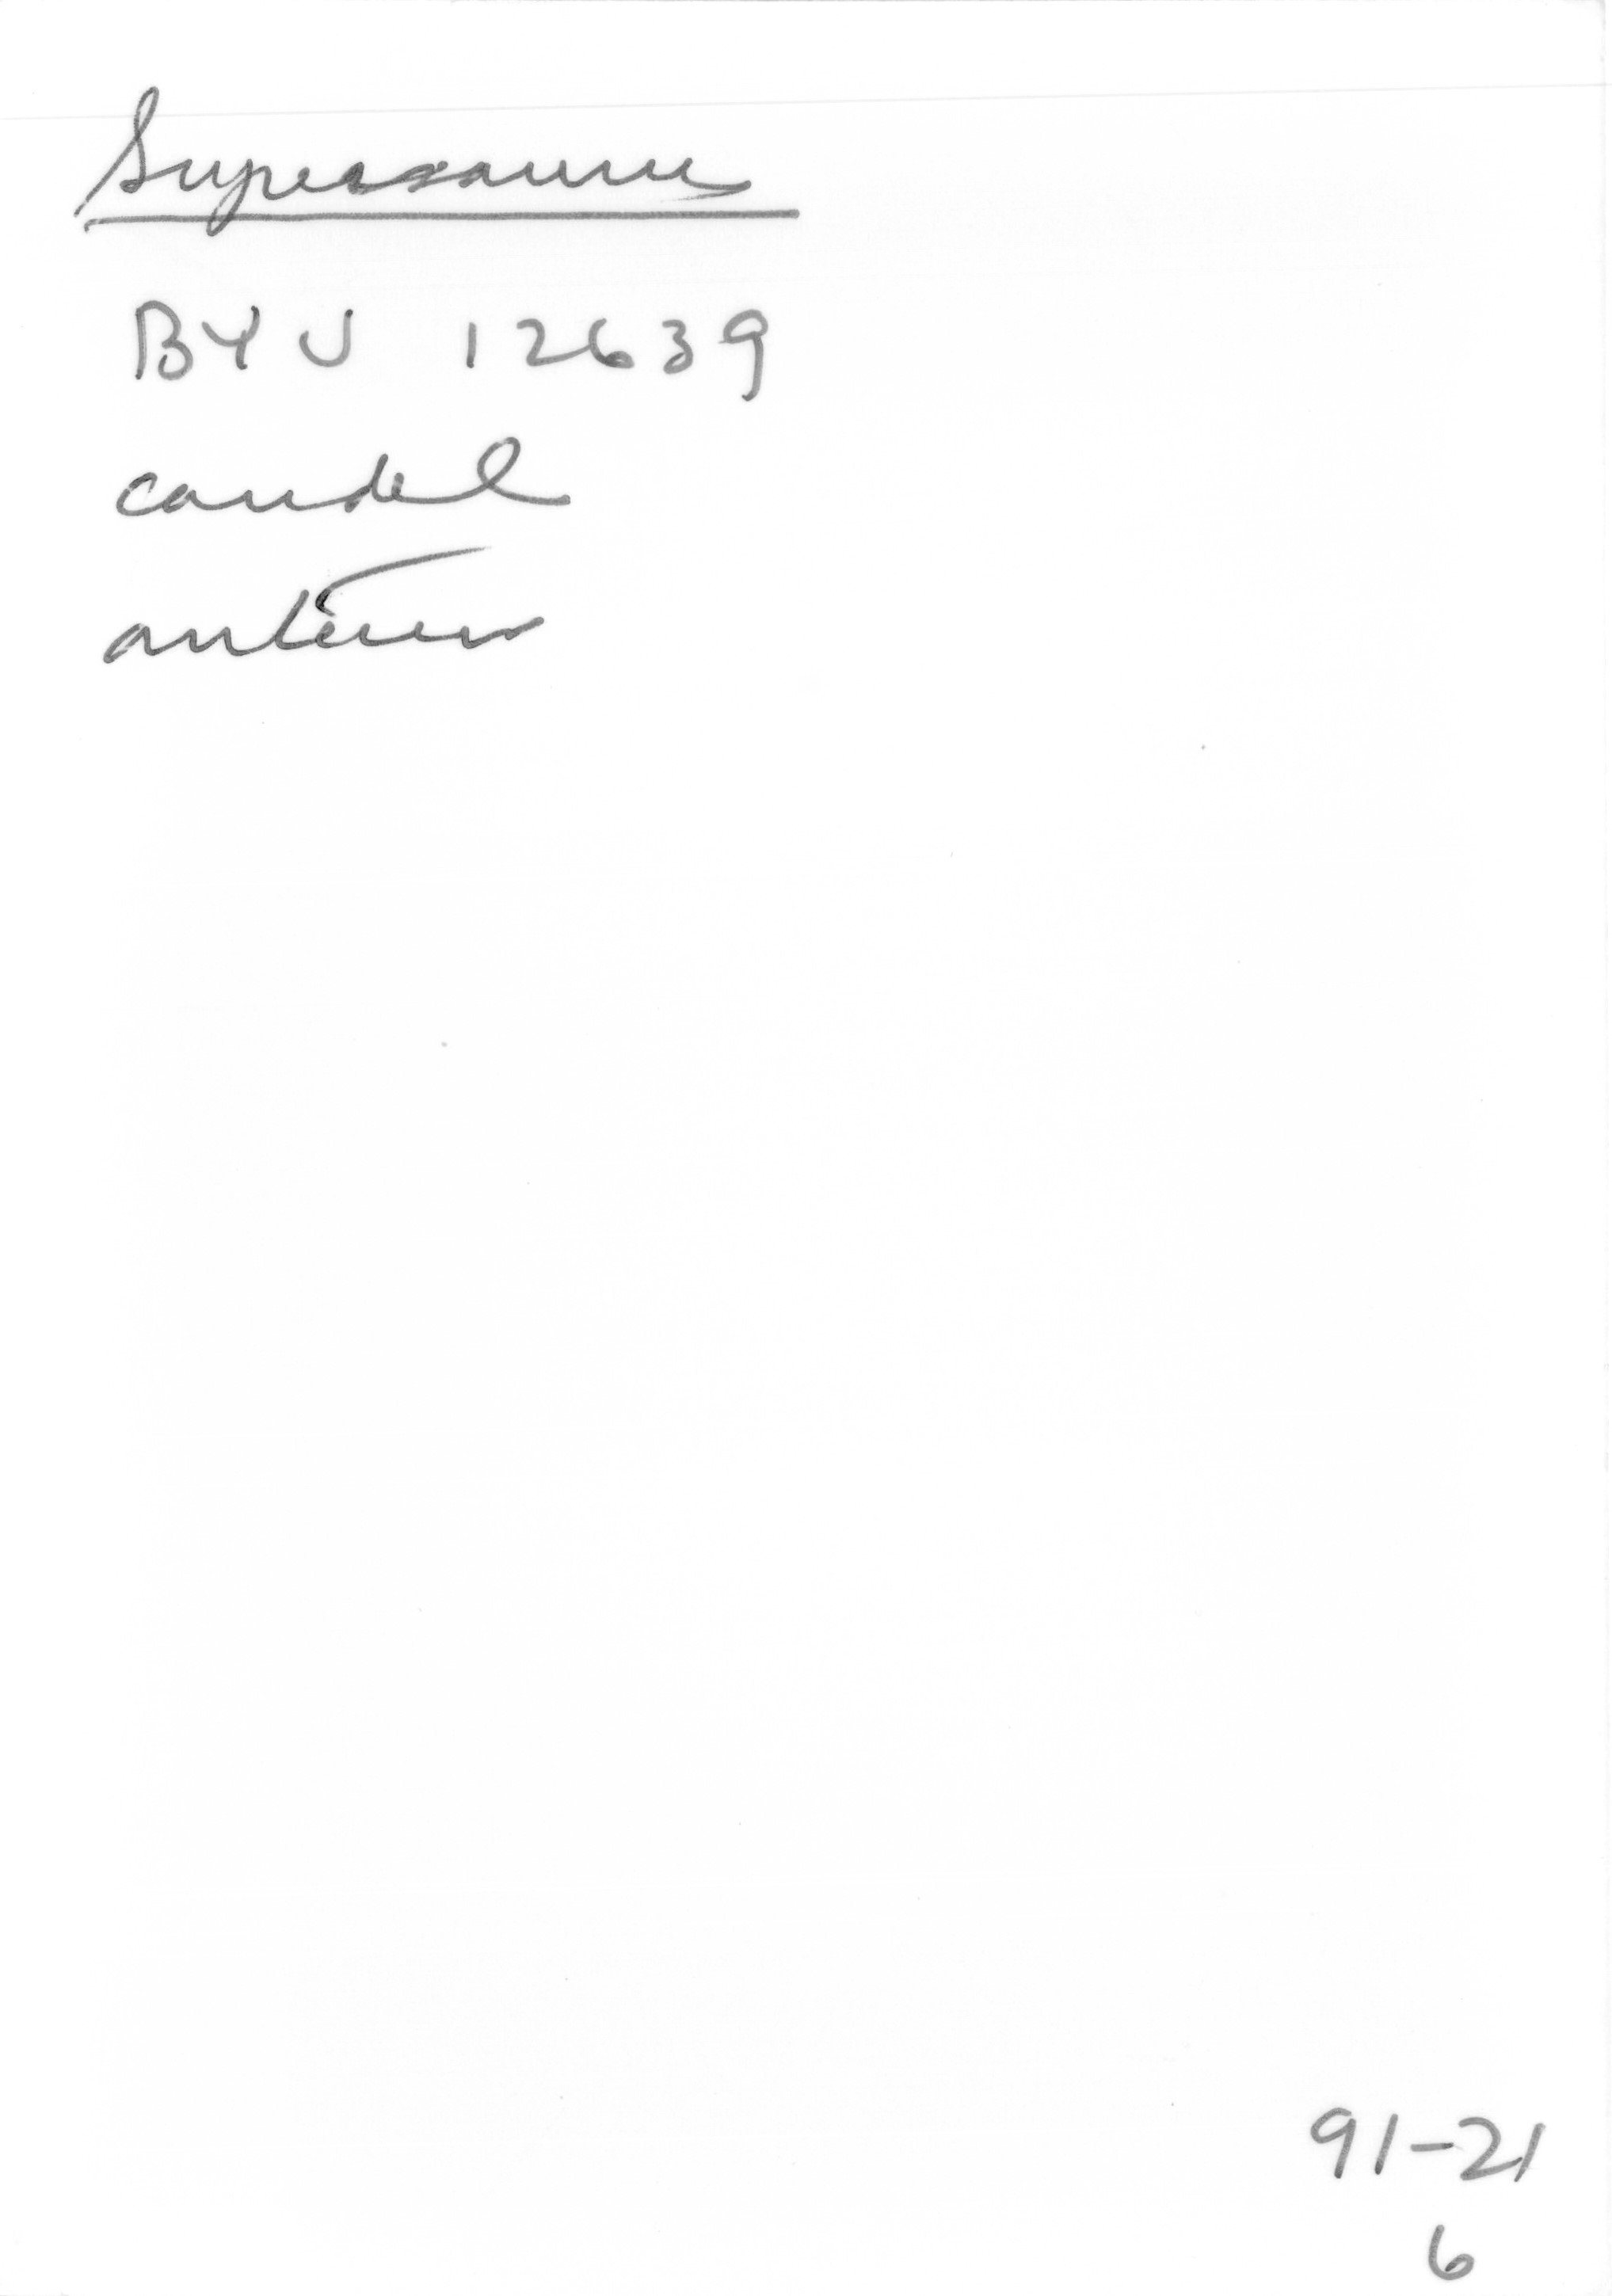 Supersaurus
BYU 12639
caudal
anterior
91-21
6